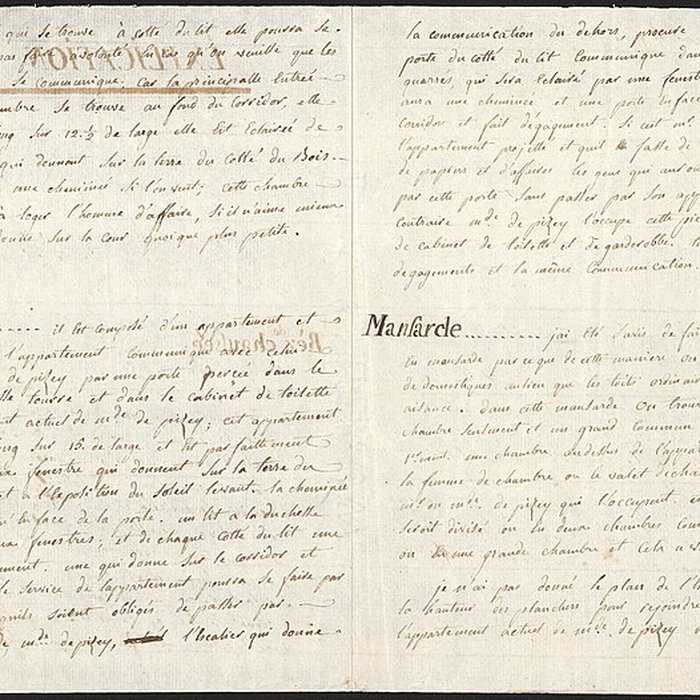 qui se trouve à cotté du lit elle pourra se
pas faire absolute qu'on veuille que les
se Communique, Car la principalle Entrée
se trouve au fond du Corridor, elle
sur 12.½ de large elle Est Eclairée de
qui donnent sur la terre du Cotté du Bois.
une cheminée si l'on veut; cette chambre
à loger l'homme d'affaire, si il n'aime mieux
donne sur la Cour quoique plus petite.
il Est composé d'un appartement et
l'appartement Communique avec celui
de pizey par une porte percée dans le
et dans le cabinet de toilette
actuel de mde de pizey; cet appartement
sur 15. de large et Est parfaittement
fenestre qui donnent sur la terre du
a l'Exposition du Soleil levant. la cheminée
En face de la porte. un lit a la duchesse
fenestres; et de chaque Cotté du lit une
une qui donne sur le corridor et
le service de l'appartement poura se faire par
soient obligés de passer par
mde de pizey, l'Escalier qui donne
la communication du dehors, procure
porte du cotté du lit Communique dans
quarrés, qui sera Eclairé par une fenes
aura une cheminée et une porte En face
Corridor et fait dégagement. Si cest mr
l'appartement projetté et quil fasse de
de papiers et d'affaires les gens qui auront
par cette porte sans passer par son app
Contraire mde de pizey l'occupe cette pie
de cabinet de toilette et de garderobbe.
degagements et la même Communication.
Mansarde.......... jai Eté d'avis de fai
En mansarde parceque de cette maniere on
de domestiques aulieu que les toits ordinai
aisance. dans cette mansarde On trou
chambre seulement et un grand Commun
une chambre audessus de l'appar
la femme de chambre ou le valet de cha
mr ou mde de pizey qui l'occupent.
seroit divisé ou En deux chambres Com
ou En une grande chambre et Cela a
je n'ai pas donné le plan de l'E
la hauteur des planchers pour repondre
l'appartement actuel de mde de pizey